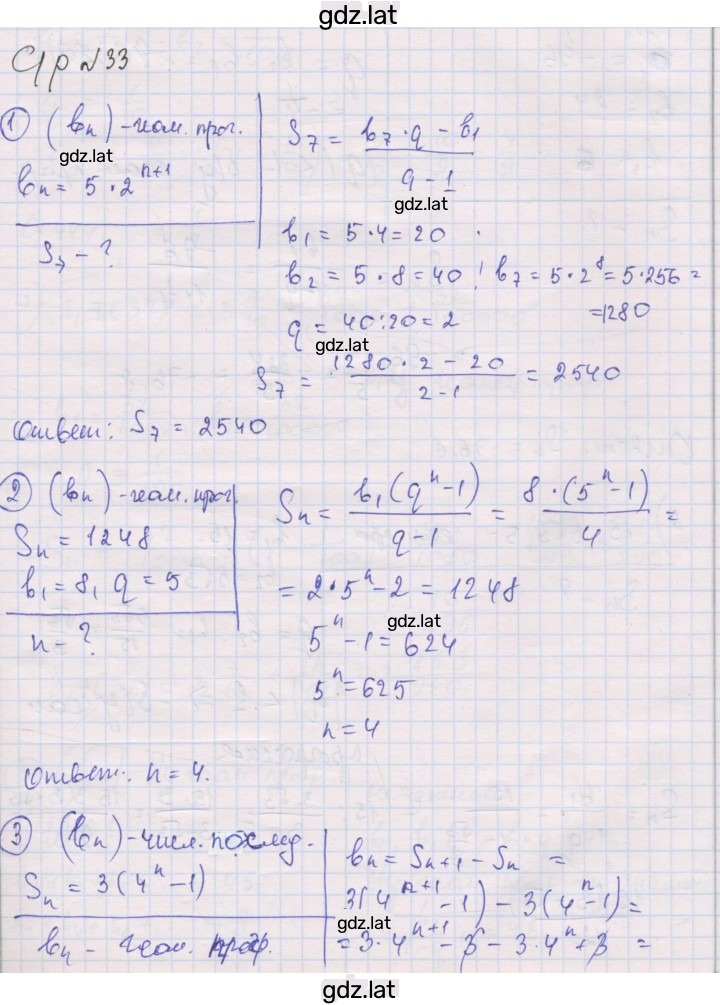 gdz.lat
Ср №33
1 (bn) - геом. прог.
gdz.lat
bn = 5 · 2^n+1
S7 - ?
S7 = b7 · q - b1 / q - 1
gdz.lat
b1 = 5 · 4 = 20
b2 = 5 · 8 = 40; b7 = 5 · 2^8 = 5 · 256 =
= 1280
q = 40 : 20 = 2
gdz.lat
S7 = 1280 · 2 - 20 / 2 - 1 = 2540
Ответ: S7 = 2540
2 (bn) - геом. прог.
Sn = 1248
b1 = 8, q = 5
n - ?
Sn = b1 (q^n - 1) / q - 1 = 8 · (5^n - 1) / 4 =
= 2 · 5^n - 2 = 1248
gdz.lat
5^n - 1 = 624
5^n = 625
n = 4
Ответ: n = 4.
3 (bn) - числ. послед.
Sn = 3(4^n - 1)
bn - геом. прогр.
bn = Sn+1 - Sn =
3(4^n+1 - 1) - 3(4^n - 1) =
gdz.lat
= 3 · 4^n+1 - 3 - 3 · 4^n + 3 =
gdz.lat